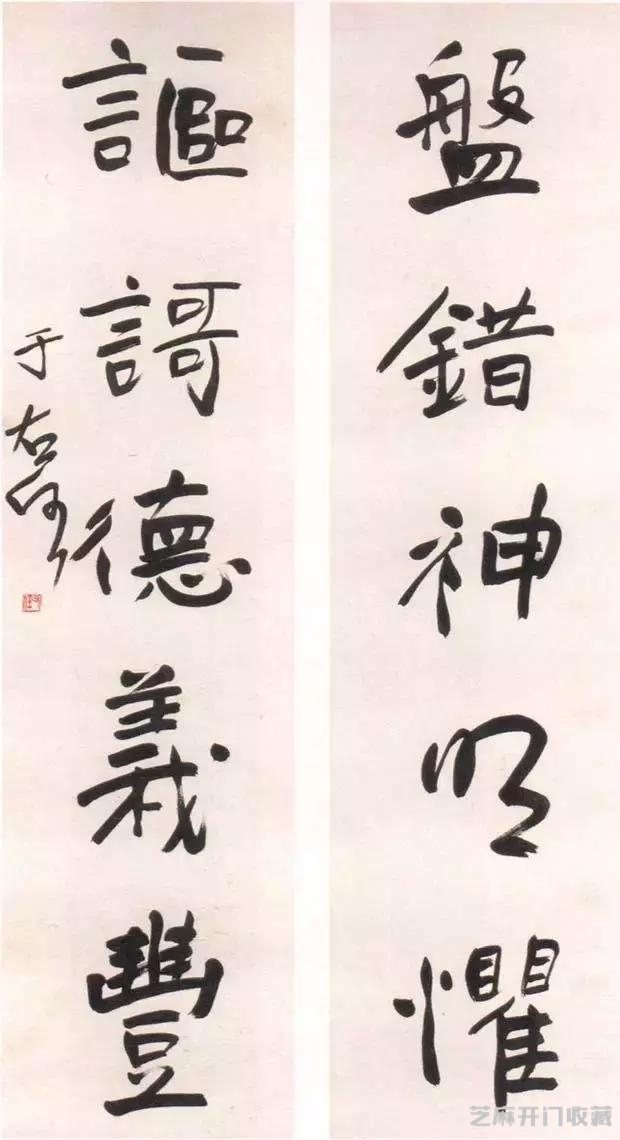 盤錯神明懼
謳謌德義豐
于右任
芝麻开门收藏